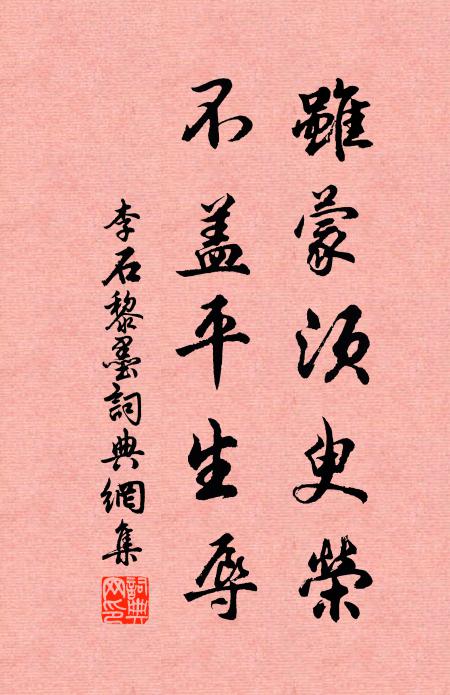 雖蒙須臾榮
不蓋平生辱
李石黎墨詞典網集
詞典網印